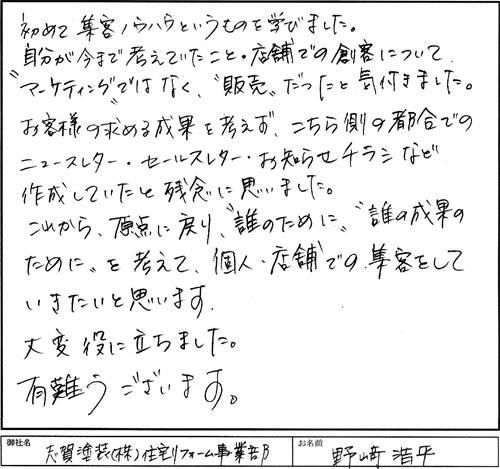 初めて集客ノウハウというものを学びました。
自分が今まで考えていたこと・店舗での創客について
"マーケティング"ではなく、"販売"だったと気付きました。
お客様の求める成果を考えず、こちら側の都合での
ニュースレター・セールスレター・お知らせチラシなど
作成していたと残念に思いました。
これから、原点に戻り、"誰のために"、"誰の成果の
ために"を考えて、個人・店舗での集客をして
いきたいと思います.
大変役に立ちました。
有難うございます。
御社名 志賀塗装(株)住宅リフォーム事業部 お名前 野﨑 浩平